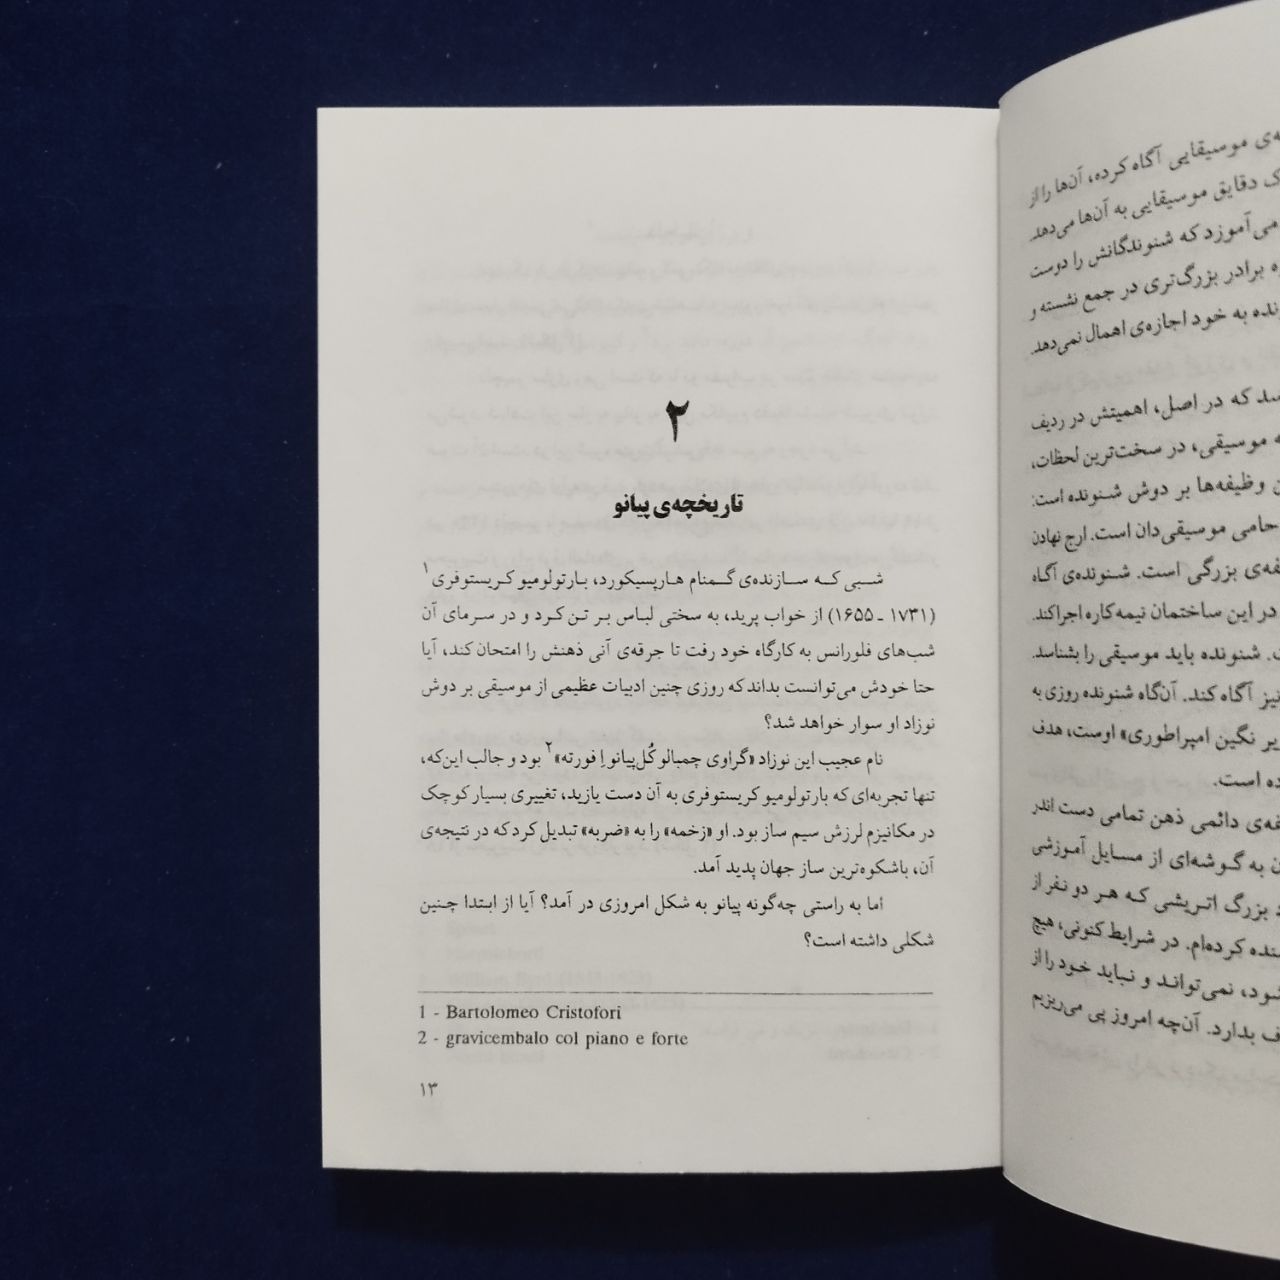 ه‌ی موسیقایی آگاه کرده، آن‌ها را از
دقایق موسیقایی به آن‌ها می‌دهد.
می‌آموزد که شنوندگانش را دوست
برادر بزرگ‌تری در جمع نشسته و
به خود اجازه‌ی اهمال نمی‌دهد.
که در اصل، اهمیتش در ردیف
موسیقی، در سخت‌ترین لحظات،
وظیفه‌ها بر دوش شنونده است:
حامی موسیقی‌دان است. ارج نهادن
بزرگی است. شنونده‌ی آگاه
در این ساختمان نیمه‌کاره اجرا کند.
شنونده باید موسیقی را بشناسد.
نیز آگاه کند. آن‌گاه شنونده روزی به
نگین امپراطوری» اوست، هدف
است.
دائمی ذهن تمامی دست اندر
به گوشه‌ای از مسایل آموزشی
بزرگ اتریشی که هر دو نفر از
کرده‌ام. در شرایط کنونی، هیچ
نمی‌تواند و نباید خود را از
بدارد. آن‌چه امروز پی می‌ریزیم
۲
تاریخچه‌ی پیانو
شبی که سازنده‌ی گمنام هارپسیکورد، بارتولومیو کریستوفری۱
(۱۷۳۱ ـ ۱۶۵۵) از خواب پرید، به سختی لباس بر تن کرد و در سرمای آن
شب‌های فلورانس به کارگاه خود رفت تا جرقه‌ی آنی ذهنش را امتحان کند، آیا
حتا خودش می‌توانست بداند که روزی چنین ادبیات عظیمی از موسیقی بر دوش
نوزاد او سوار خواهد شد؟
نام عجیب این نوزاد «گراوی چمبالو کُل‌پیانو اِ فورته»۲ بود و جالب این‌که،
تنها تجربه‌ای که بارتولومیو کریستوفری به آن دست یازید، تغییری بسیار کوچک
در مکانیزم لرزش سیم ساز بود. او «زخمه» را به «ضربه» تبدیل کرد که در نتیجه‌ی
آن، باشکوه‌ترین ساز جهان پدید آمد.
اما به راستی چه‌گونه پیانو به شکل امروزی در آمد؟ آیا از ابتدا چنین
شکلی داشته است؟
1 - Bartolomeo Cristofori
2 - gravicembalo col piano e forte
۱۳